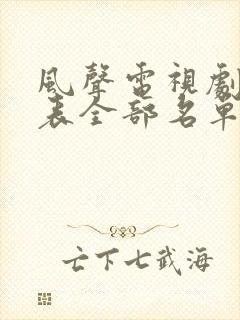 風聲電視劇
表全部名單
亡下七武海